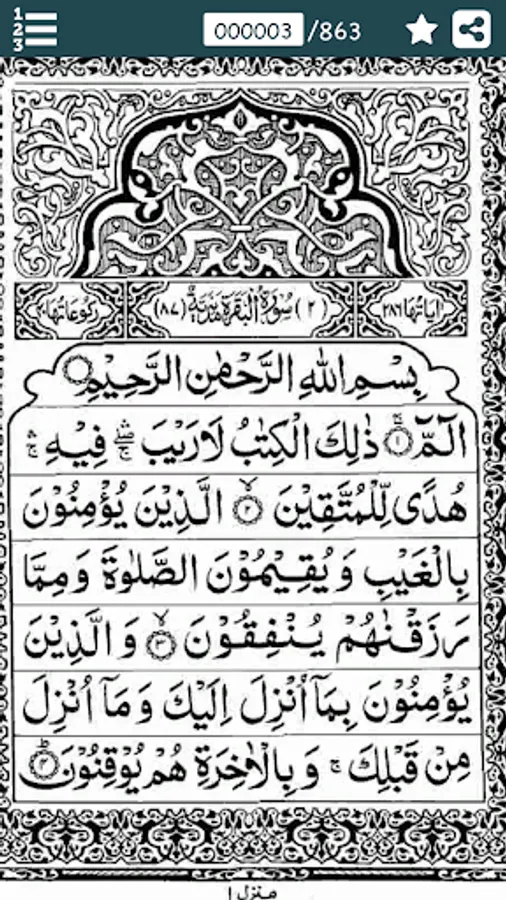 1
2
3
000003 /863
اٰیاتُهَا ٢٨٦ (٢) سُوْرَةُ الْبَقَرَةِ مَدَنِيَّةٌ (٨٧) رُكُوْعَاتُهَا ٤٠
بِسْمِ اللّٰهِ الرَّحْمٰنِ الرَّحِيْمِ
الٓمّٓ ۚ ١ ذٰلِكَ الْكِتٰبُ لَا رَيْبَ ۛۖۚ فِيْهِ ۛۚ
هُدًى لِّلْمُتَّقِيْنَ ۙ ٢ الَّذِيْنَ يُؤْمِنُوْنَ
بِالْغَيْبِ وَ يُقِيْمُوْنَ الصَّلٰوةَ وَ مِمَّا
رَزَقْنٰهُمْ يُنْفِقُوْنَ ۙ ٣ وَ الَّذِيْنَ
يُؤْمِنُوْنَ بِمَاۤ اُنْزِلَ اِلَيْكَ وَ مَاۤ اُنْزِلَ
مِنْ قَبْلِكَ ۚ وَ بِالْاٰخِرَةِ هُمْ يُوْقِنُوْنَ ؕ ٤
منزل ١